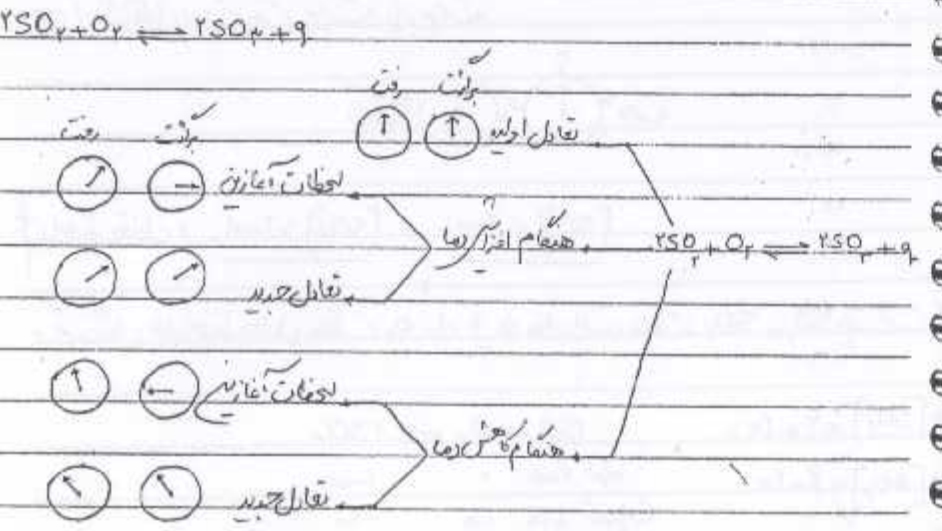 ۲SO₂ + O₂ ⇌ ۲SO₃ + q
برگشت رفت
تعادل اولیه
برگشت رفت
لحظات آغازین
هنگام افزایش دما
۲SO₂ + O₂ ⇌ ۲SO₃ + q
تعادل جدید
لحظات آغازین
هنگام کاهش دما
تعادل جدید